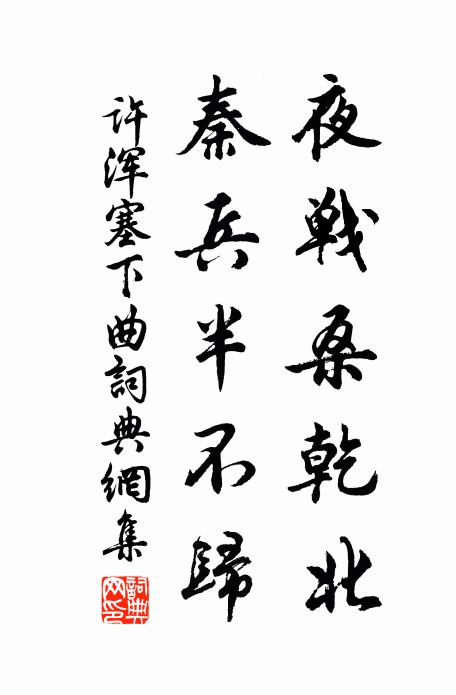 夜戦桑乾北
秦兵半不歸
许渾塞下曲詞典網集
詞典網印